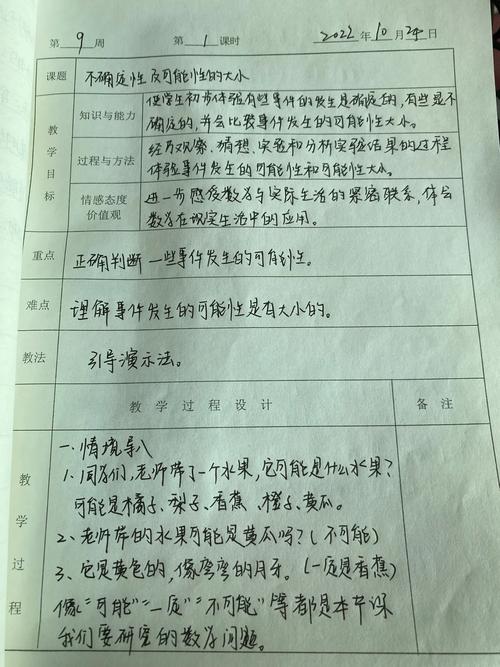 第 9 周 第 1 课时 2022 年 10 月 24 日
课题 不确定性及可能性的大小
教学目标
知识与能力
使学生初步体验有些事件的发生是确定的,有些是不
确定的,并会比较事件发生的可能性大小。
过程与方法
经历观察、猜想、实验和分析实验结果的过程
体验事件发生的可能性和可能性大小。
情感态度
价值观
进一步感受数学与实际生活的紧密联系,体会
数学在现实生活中的应用。
重点 正确判断一些事件发生的可能性。
难点 理解事件发生的可能性是有大小的。
教法 引导演示法。
教学过程设计 备注
教学过程
一、情境导入
1、同学们,老师带了一个水果,它可能是什么水果?
可能是橘子、梨子、香蕉、橙子、黄瓜。
2、老师带的水果可能是黄瓜吗?(不可能)
3、它是黄色的,像弯弯的月牙。(一定是香蕉)
像“可能”“一定”“不可能”等都是本节课
我们要研究的数学问题。